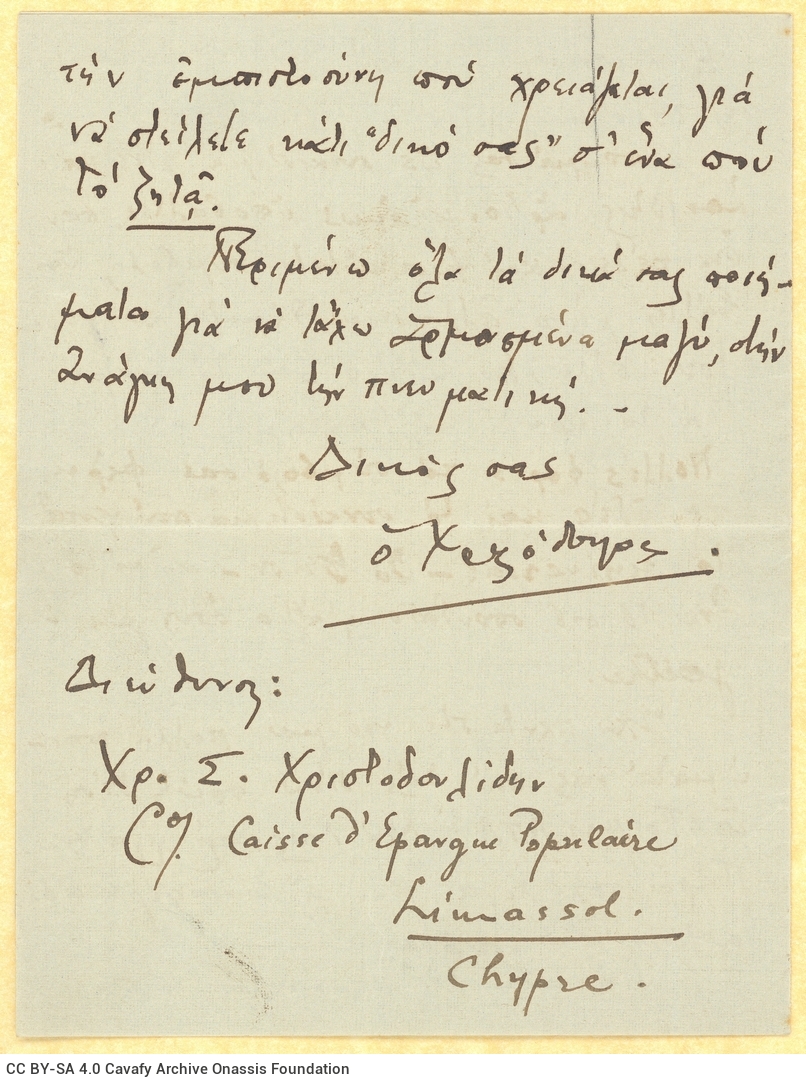 τὴν ἐμπιστοσύνη ποὺ χρειάζεται, γιὰ
νὰ στείλετε κάτι "δικό σας" σ' ἕνα ποὺ
τὸ ζητᾷ.
Περιμένω ὅλα τὰ δικά σας ποιή-
ματα γιὰ νὰ τἄχω ἁρμοσμένα μαζύ, στὴν
ἀνάγκη μου τὴν πνευματική. -
Δικός σας
ὁ
Διεύθυνσι:
Χρ. Σ. Χριστοδουλίδην
C/o Caisse d'Epargne Populaire
Limassol.
Chypre.
CC BY-SA 4.0 Cavafy Archive Onassis Foundation